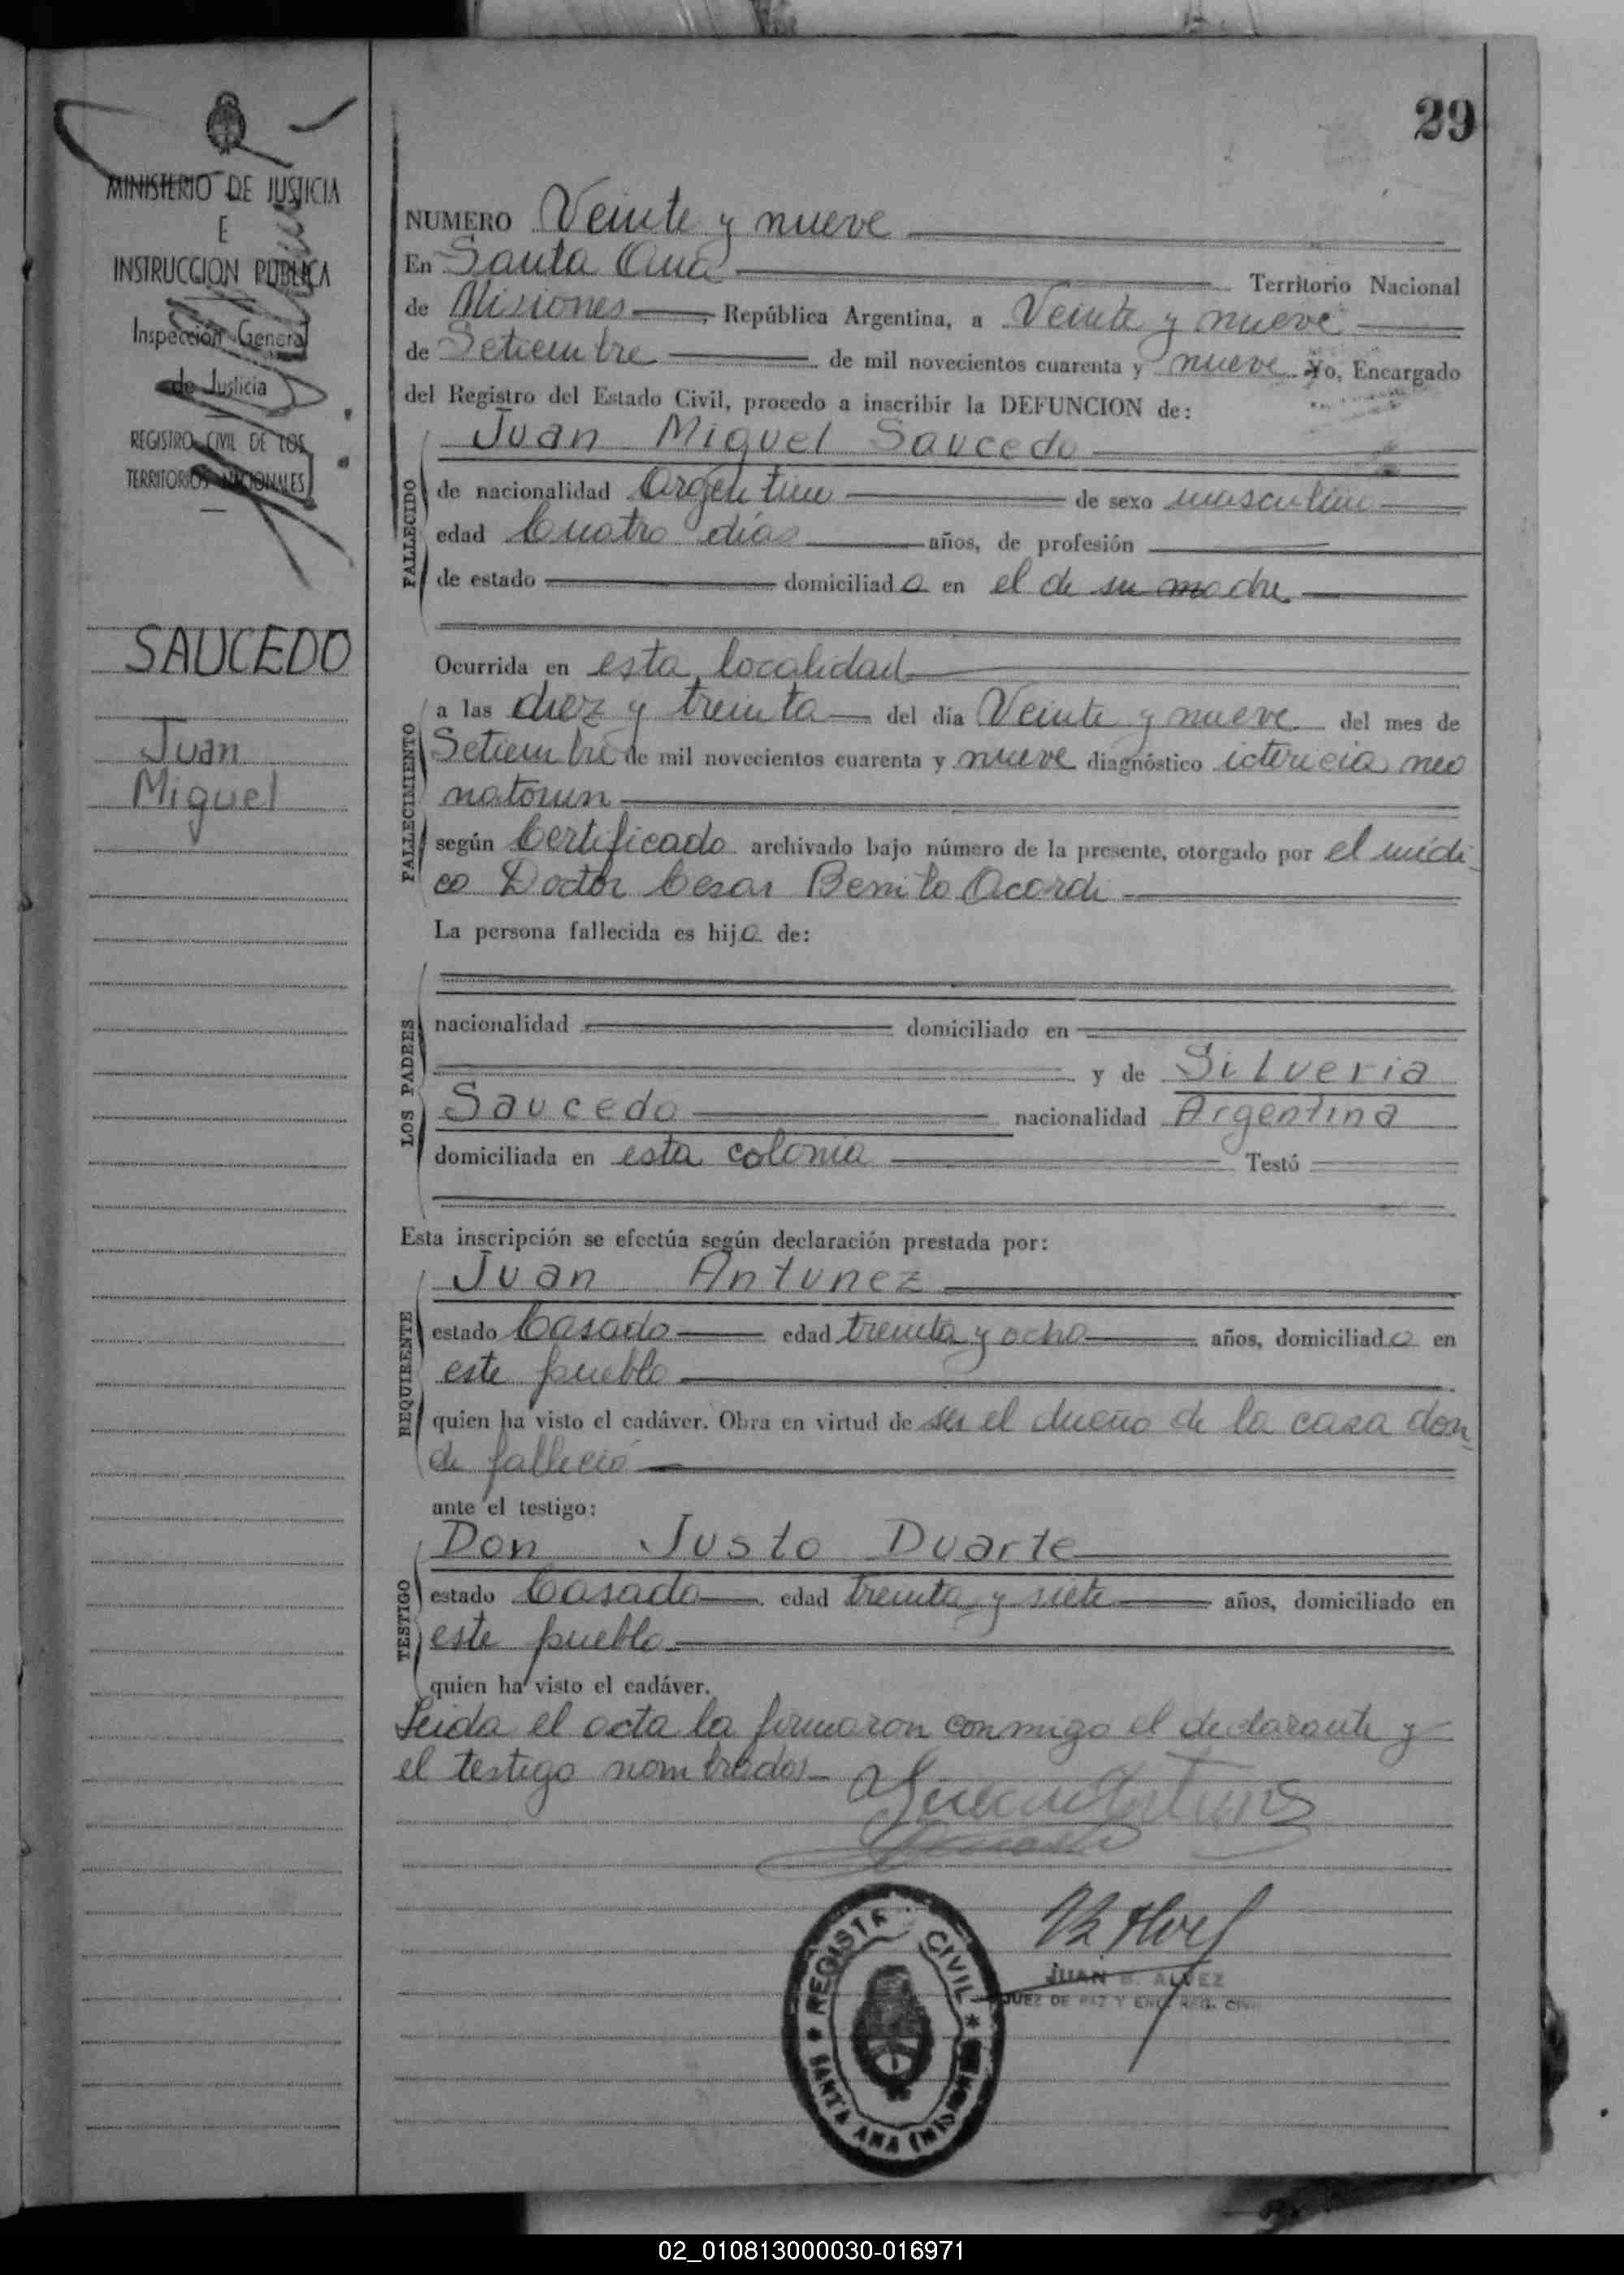 29
MINISTERIO DE JUSTICIA
E
INSTRUCCION PUBLICA
Inspección General
de Justicia
REGISTRO CIVIL DE LOS
TERRITORIOS NACIONALES
SAUCEDO
Juan
Miguel
NUMERO Veinte y nueve
En Santa Ana Territorio Nacional
de Misiones, República Argentina, a Veinte y nueve
de Setiembre de mil novecientos cuarenta y nueve Yo, Encargado
del Registro del Estado Civil, procedo a inscribir la DEFUNCION de:
Juan Miguel Saucedo
FALLECIDO
de nacionalidad Argentino de sexo masculino
edad Cuatro días años, de profesión
de estado domiciliado en el de su madre
Ocurrida en esta localidad
FALLECIMIENTO
a las diez y treinta del día Veinte y nueve del mes de
Setiembre de mil novecientos cuarenta y nueve diagnóstico ictericia neo
natorun
según Certificado archivado bajo número de la presente, otorgado por el médi-
co Doctor Cesar Benito Acordi
La persona fallecida es hijo de:
LOS PADRES
nacionalidad domiciliado en
y de Silveria
Saucedo nacionalidad Argentina
domiciliada en esta colonia Testó
Esta inscripción se efectúa según declaración prestada por:
Juan Antunez
REQUIRENTE
estado Casado edad treinta y ocho años, domiciliado en
este pueblo
quien ha visto el cadáver. Obra en virtud de ser el dueño de la casa don-
de falleció
ante el testigo:
Don Justo Duarte
TESTIGO
estado Casado edad treinta y siete años, domiciliado en
este pueblo
quien ha visto el cadáver.
Leida el acta la firmaron conmigo el declarante y
el testigo nombrados
REGISTRO CIVIL
SANTA ANA (MISIONES)
JUAN B. ALVEZ
JUEZ DE PAZ Y ENC. REG. CIVIL
02_010813000030-016971